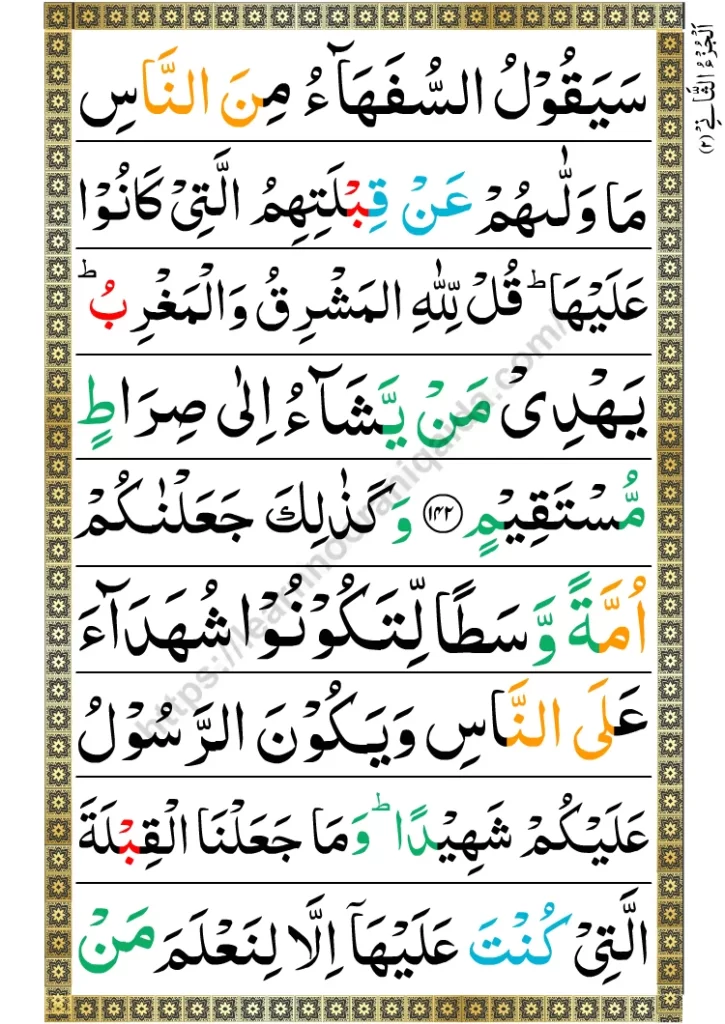 اَلْجُزْءُ الثَّانِيْ (٢)
سَيَقُوْلُ السُّفَهَآءُ مِنَ النَّاسِ
مَا وَلّٰىهُمْ عَنْ قِبْلَتِهِمُ الَّتِيْ كَانُوْا
عَلَيْهَا ؕ قُلْ لِّلّٰهِ الْمَشْرِقُ وَالْمَغْرِبُ ؕ
يَهْدِيْ مَنْ يَّشَآءُ اِلٰى صِرَاطٍ
مُّسْتَقِيْمٍ ﴿١٤٢﴾ وَكَذٰلِكَ جَعَلْنٰكُمْ
اُمَّةً وَّسَطًا لِّتَكُوْنُوْا شُهَدَآءَ
عَلَى النَّاسِ وَيَكُوْنَ الرَّسُوْلُ
عَلَيْكُمْ شَهِيْدًا ؕ وَمَا جَعَلْنَا الْقِبْلَةَ
الَّتِيْ كُنْتَ عَلَيْهَآ اِلَّا لِنَعْلَمَ مَنْ
https://learnnooraniqaida.com/